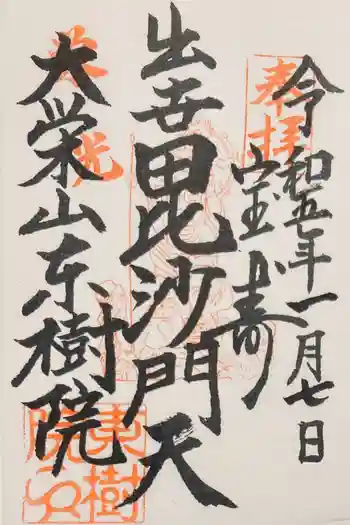 奉拝
令和五年一月七日
宝寿
出世毘沙門天
大栄山東樹院
東樹院